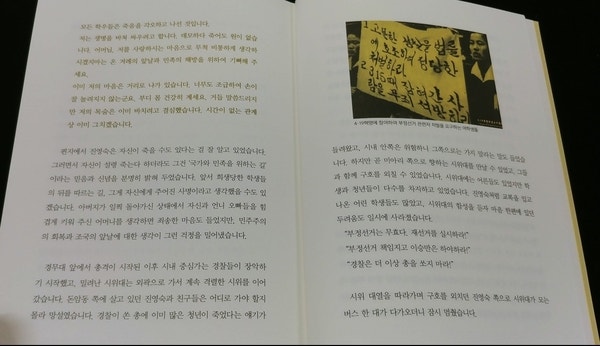 모든 학우들은 죽음을 각오하고 나선 것입니다.
저는 생명을 바쳐 싸우려고 합니다. 데모하다 죽어도 원이 없습
니다. 어머님, 저를 사랑하시는 마음으로 무척 비통하게 생각하
시겠지마는 온 겨레의 앞날과 민족의 해방을 위하여 기뻐해 주
세요.
이미 저의 마음은 거리로 나가 있습니다. 너무도 조급하여 손이
잘 놀려지지 않는군요. 부디 몸 건강히 계세요. 거듭 말씀드리지
만 저의 목숨은 이미 바치려고 결심했습니다. 시간이 없는 관계
상 이만 그치겠습니다.
편지에서 진영숙은 자신이 죽을 수도 있다는 걸 잘 알고 있었습니다.
그러면서 자신이 설령 죽는다 하더라도 그건 '국가와 민족을 위하는 길'
이라는 믿음과 신념을 분명히 밝혀 두고 있었습니다. 앞서 희생당한 학생들
의 뒤를 따르는 길, 그게 자신에게 주어진 사명이라고 생각했을 수도 있
겠습니다. 아버지가 일찍 돌아가신 상태에서 자신과 언니 오빠들을 힘
겹게 키워 주신 어머니를 생각하면 죄송한 마음도 들었지만, 민주주의
의 회복과 조국의 앞날에 대한 생각이 그런 걱정을 밀어냈습니다.
경무대 앞에서 총격이 시작된 이후 시내 중심가는 경찰들이 장악하
기 시작했고, 밀려난 시위대는 외곽으로 가서 계속 격렬한 시위를 이어
갔습니다. 돈암동 쪽에 살고 있던 진영숙과 친구들은 어디로 가야 할지
몰라 망설였습니다. 경찰이 쏜 총에 이미 많은 청년이 죽었다는 얘기가
들려왔고, 시내 안쪽은 위험하니 그쪽으로는 가지 말라는 말도 들었습
니다. 하지만 곧 미아리 쪽으로 향하는 시위대를 만날 수 있었고, 그들
과 함께 구호를 외칠 수 있었습니다. 시위대에는 어른들도 있었지만 학
생과 청년들이 다수를 차지하고 있었습니다. 진영숙처럼 교복을 입고
나온 어린 학생들도 많았고, 시위대의 함성을 듣자 마음 한편에 있던
두려움도 일시에 사라졌습니다.
"부정선거는 무효다. 재선거를 실시하라!"
"부정선거 책임지고 이승만은 하야하라!"
"경찰은 더 이상 총을 쏘지 마라!"
시위 대열을 따라가며 구호를 외치던 진영숙 쪽으로, 시위대가 모는
버스 한 대가 다가오더니 잠시 멈췄습니다.